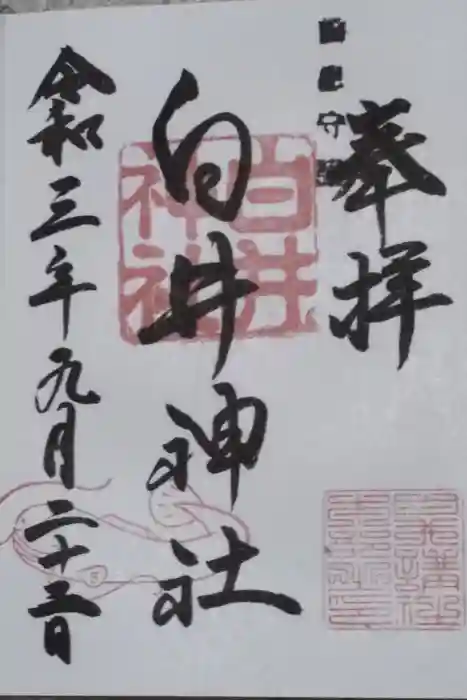 奉拝
白井神社
白井神社
令和三年九月二十三日